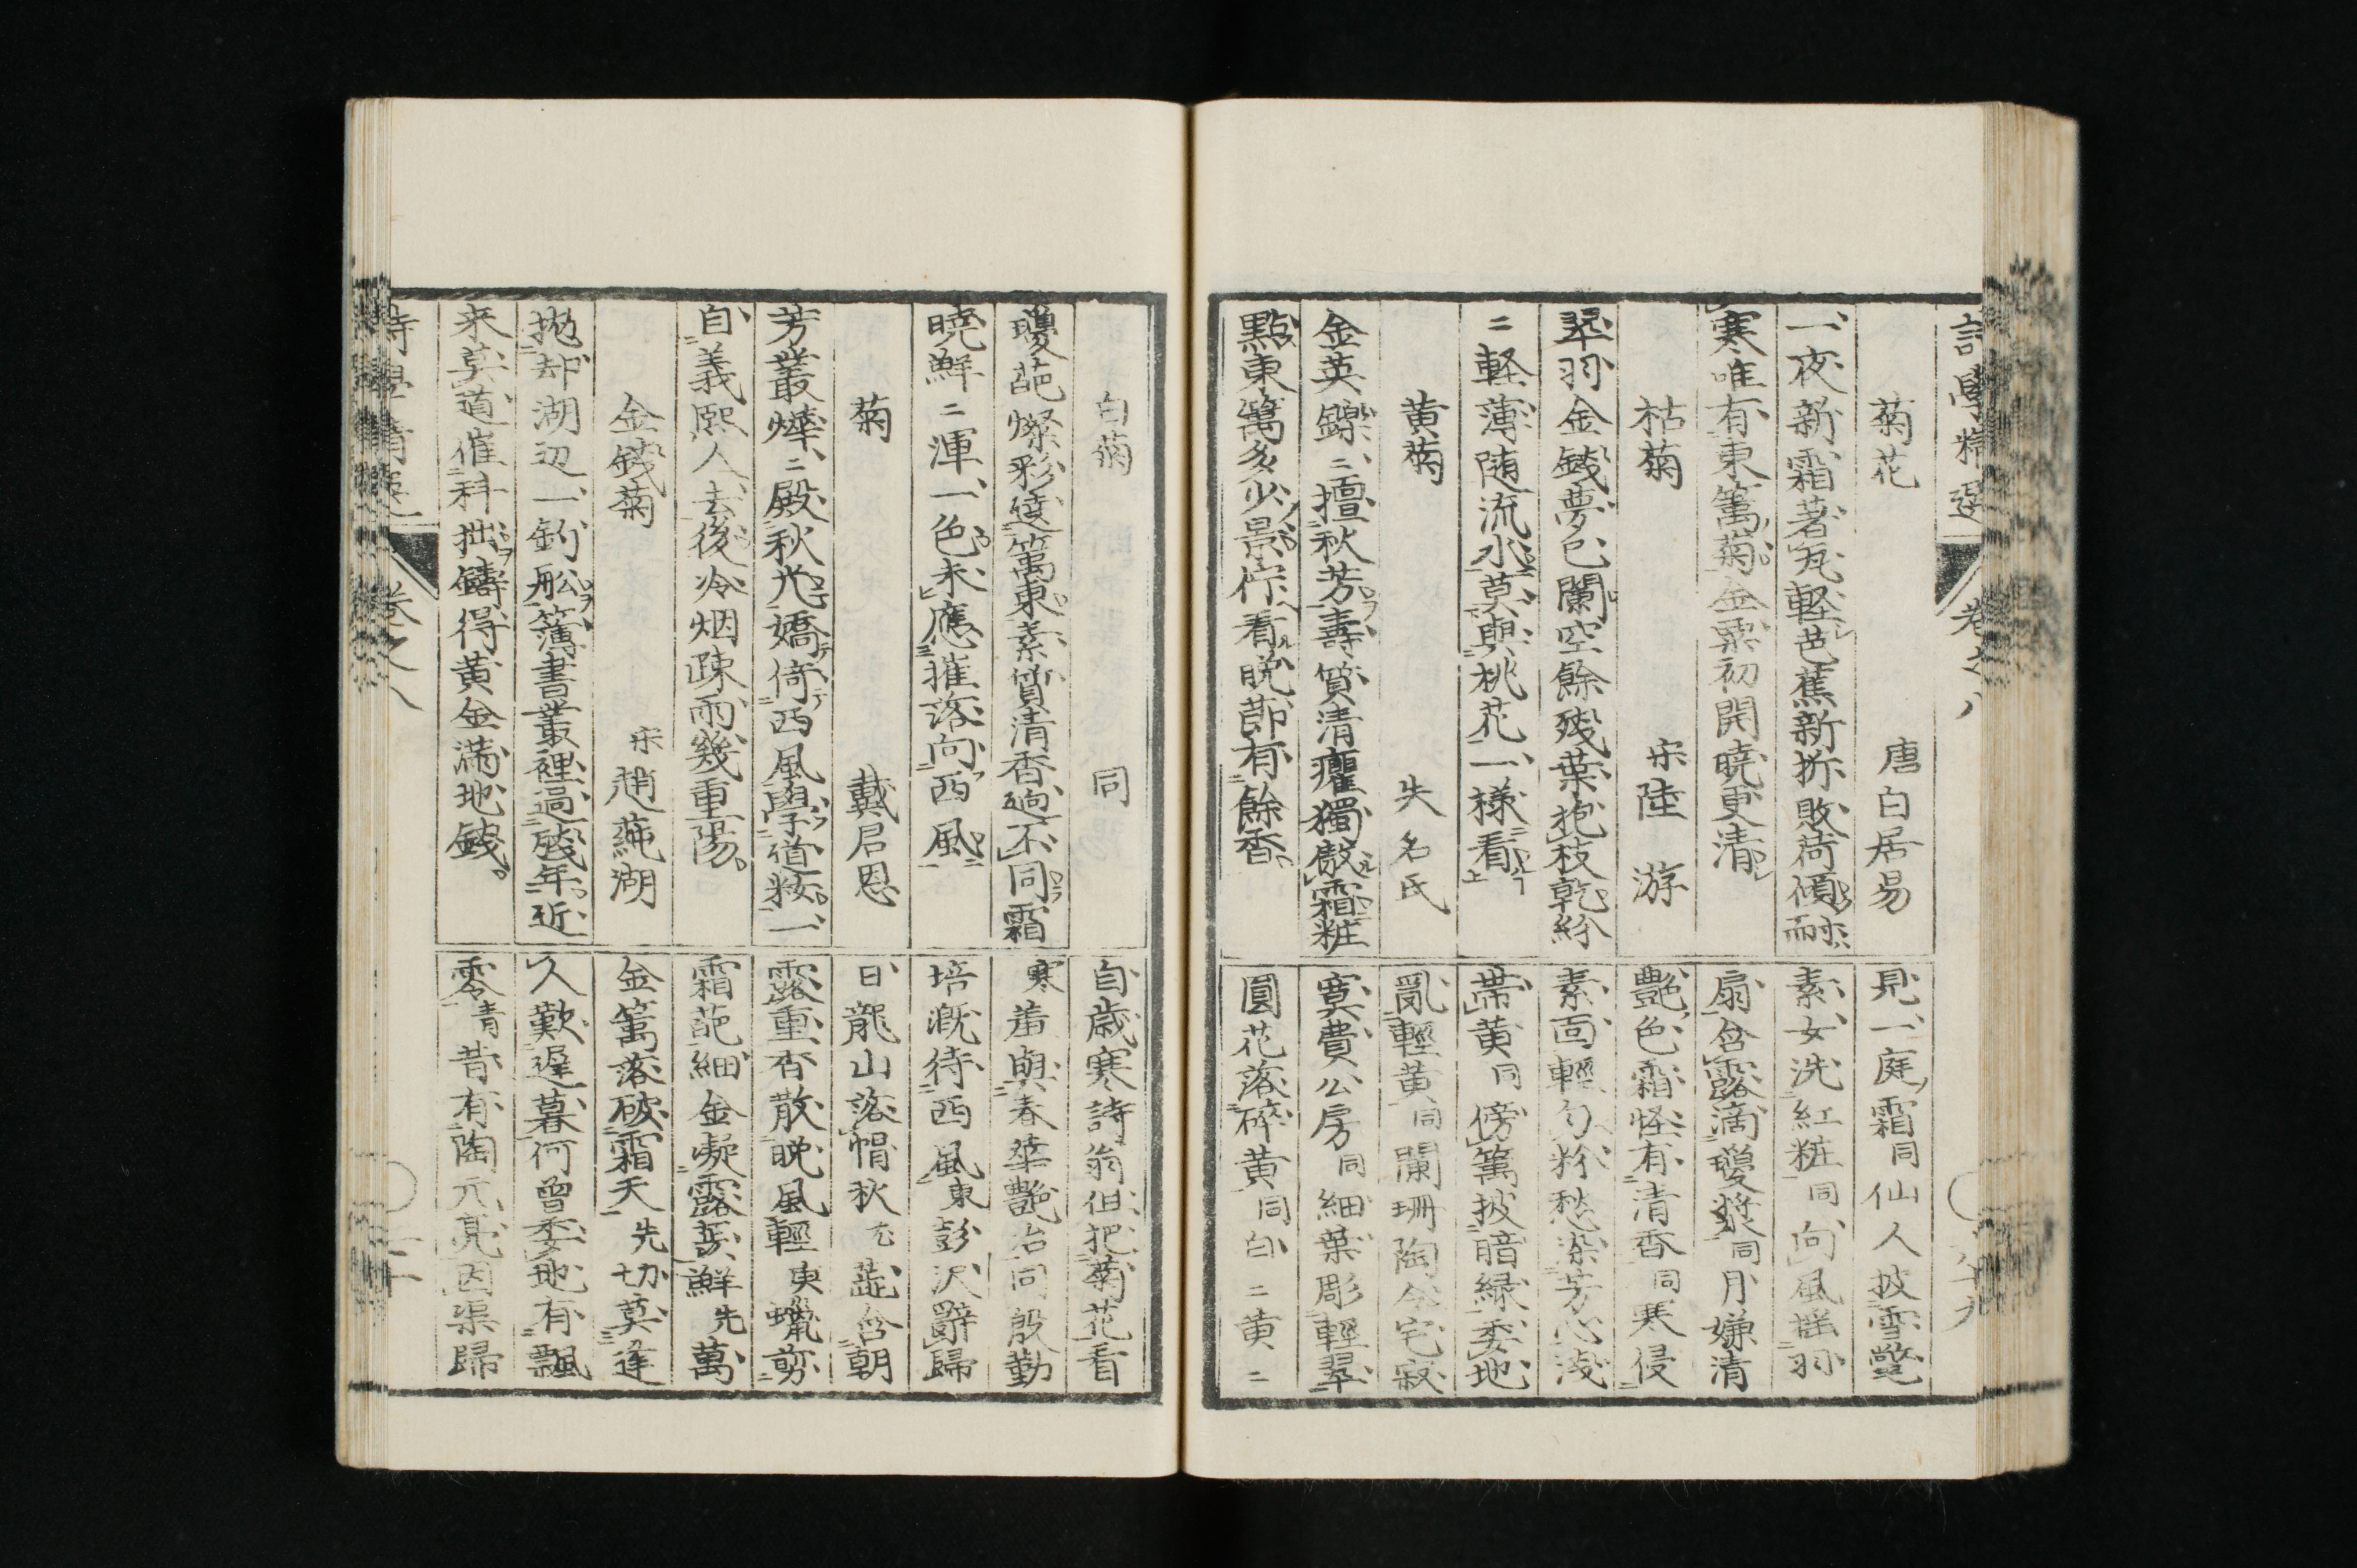 詩學精選 卷之八
菊花 唐白居易
一夜新霜著瓦軽芭蕉新折敗荷傾耐
寒唯有東篱菊金粟初開暁更清
枯菊 宋陸游
翠羽金錢夢已闌空餘残葉抱枝乾紛
〻軽薄随流水莫與桃花一様看
黄菊 失名氏
金英鑠〻擅秋芳壽質清癯獨傲霜粧
點東篱多少景 看晩節有餘香
見一庭霜同仙人披雪氅
素女洗紅粧同向風揺羽
扇含露滴瓊漿同月嫌清
艶色霜怪有清香同寒侵
素面輕勻粉愁染芳心淺
帯黄同傍篱披暗緑委地
亂輕黄同闌珊陶令宅寂
寞費公房同細葉彫輕翠
圓花落碎黄同白〻黄〻
白菊 同
瓊葩燦彩遶篱東素質清香逈不同霜
暁鮮〻渾一色未應摧落向西風
菊 戴君恩
芳叢燁〻殿秋光嬌倚西風學道粧一
自義熙人去後冷烟疎雨幾重陽
金錢菊 宋趙蓴湖
抛却湖辺一釣舩簿書叢裡過殘年近
来莫道催科拙鑄得黄金満地錢
自歳寒詩翁但把菊花看
寒羞與春華艶冶同殷勤
培漑待西風東彭沢辭歸
日龍山落帽秋尤蕋含朝
露重香散晩風輕庚蠟剪
霜葩細金凝露蘂鮮先萬
金篱落破霜天先切莫逢
人歎遅暮何曽委地有飄
零青昔有陶元亮因渠歸
詩學精選 卷之八